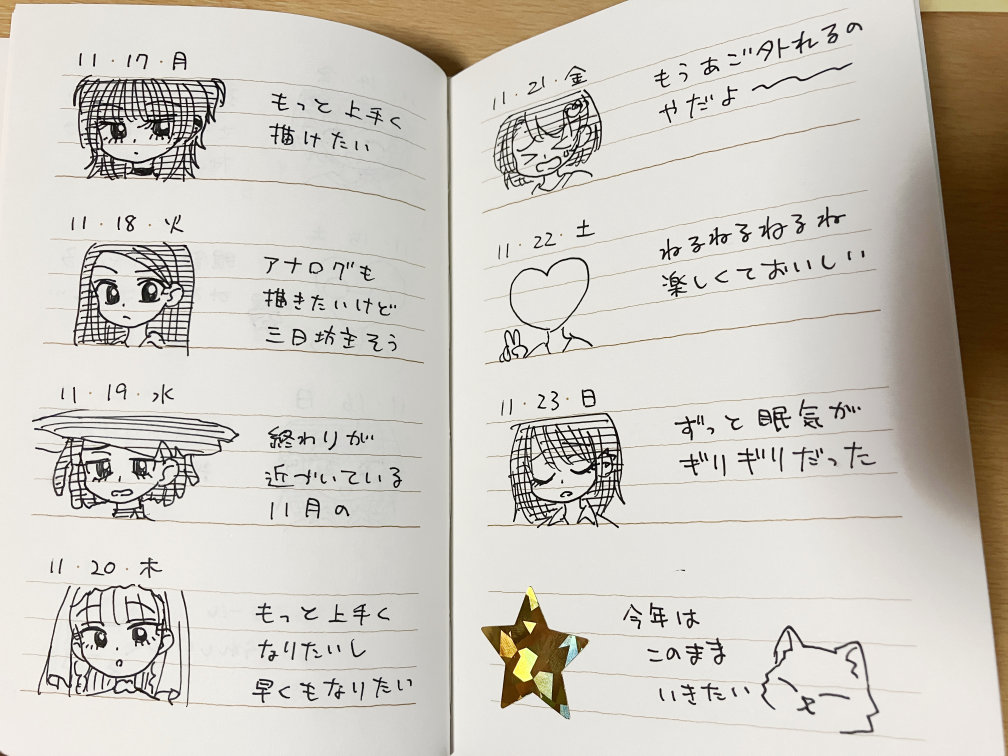 11・17・月
もっと上手く
描けたい
11・18・火
アナログも
描きたいけど
三日坊主そう
11・19・水
終わりが
近づいている
11月の
11・20・木
もっと上手く
なりたいし
早くもなりたい
11・21・金
もうあご外れるの
やだよ〜〜
11・22・土
ねるねるねるね
楽しくておいしい
11・23・日
ずっと眠気が
ギリギリだった
今年は
このまま
いきたい